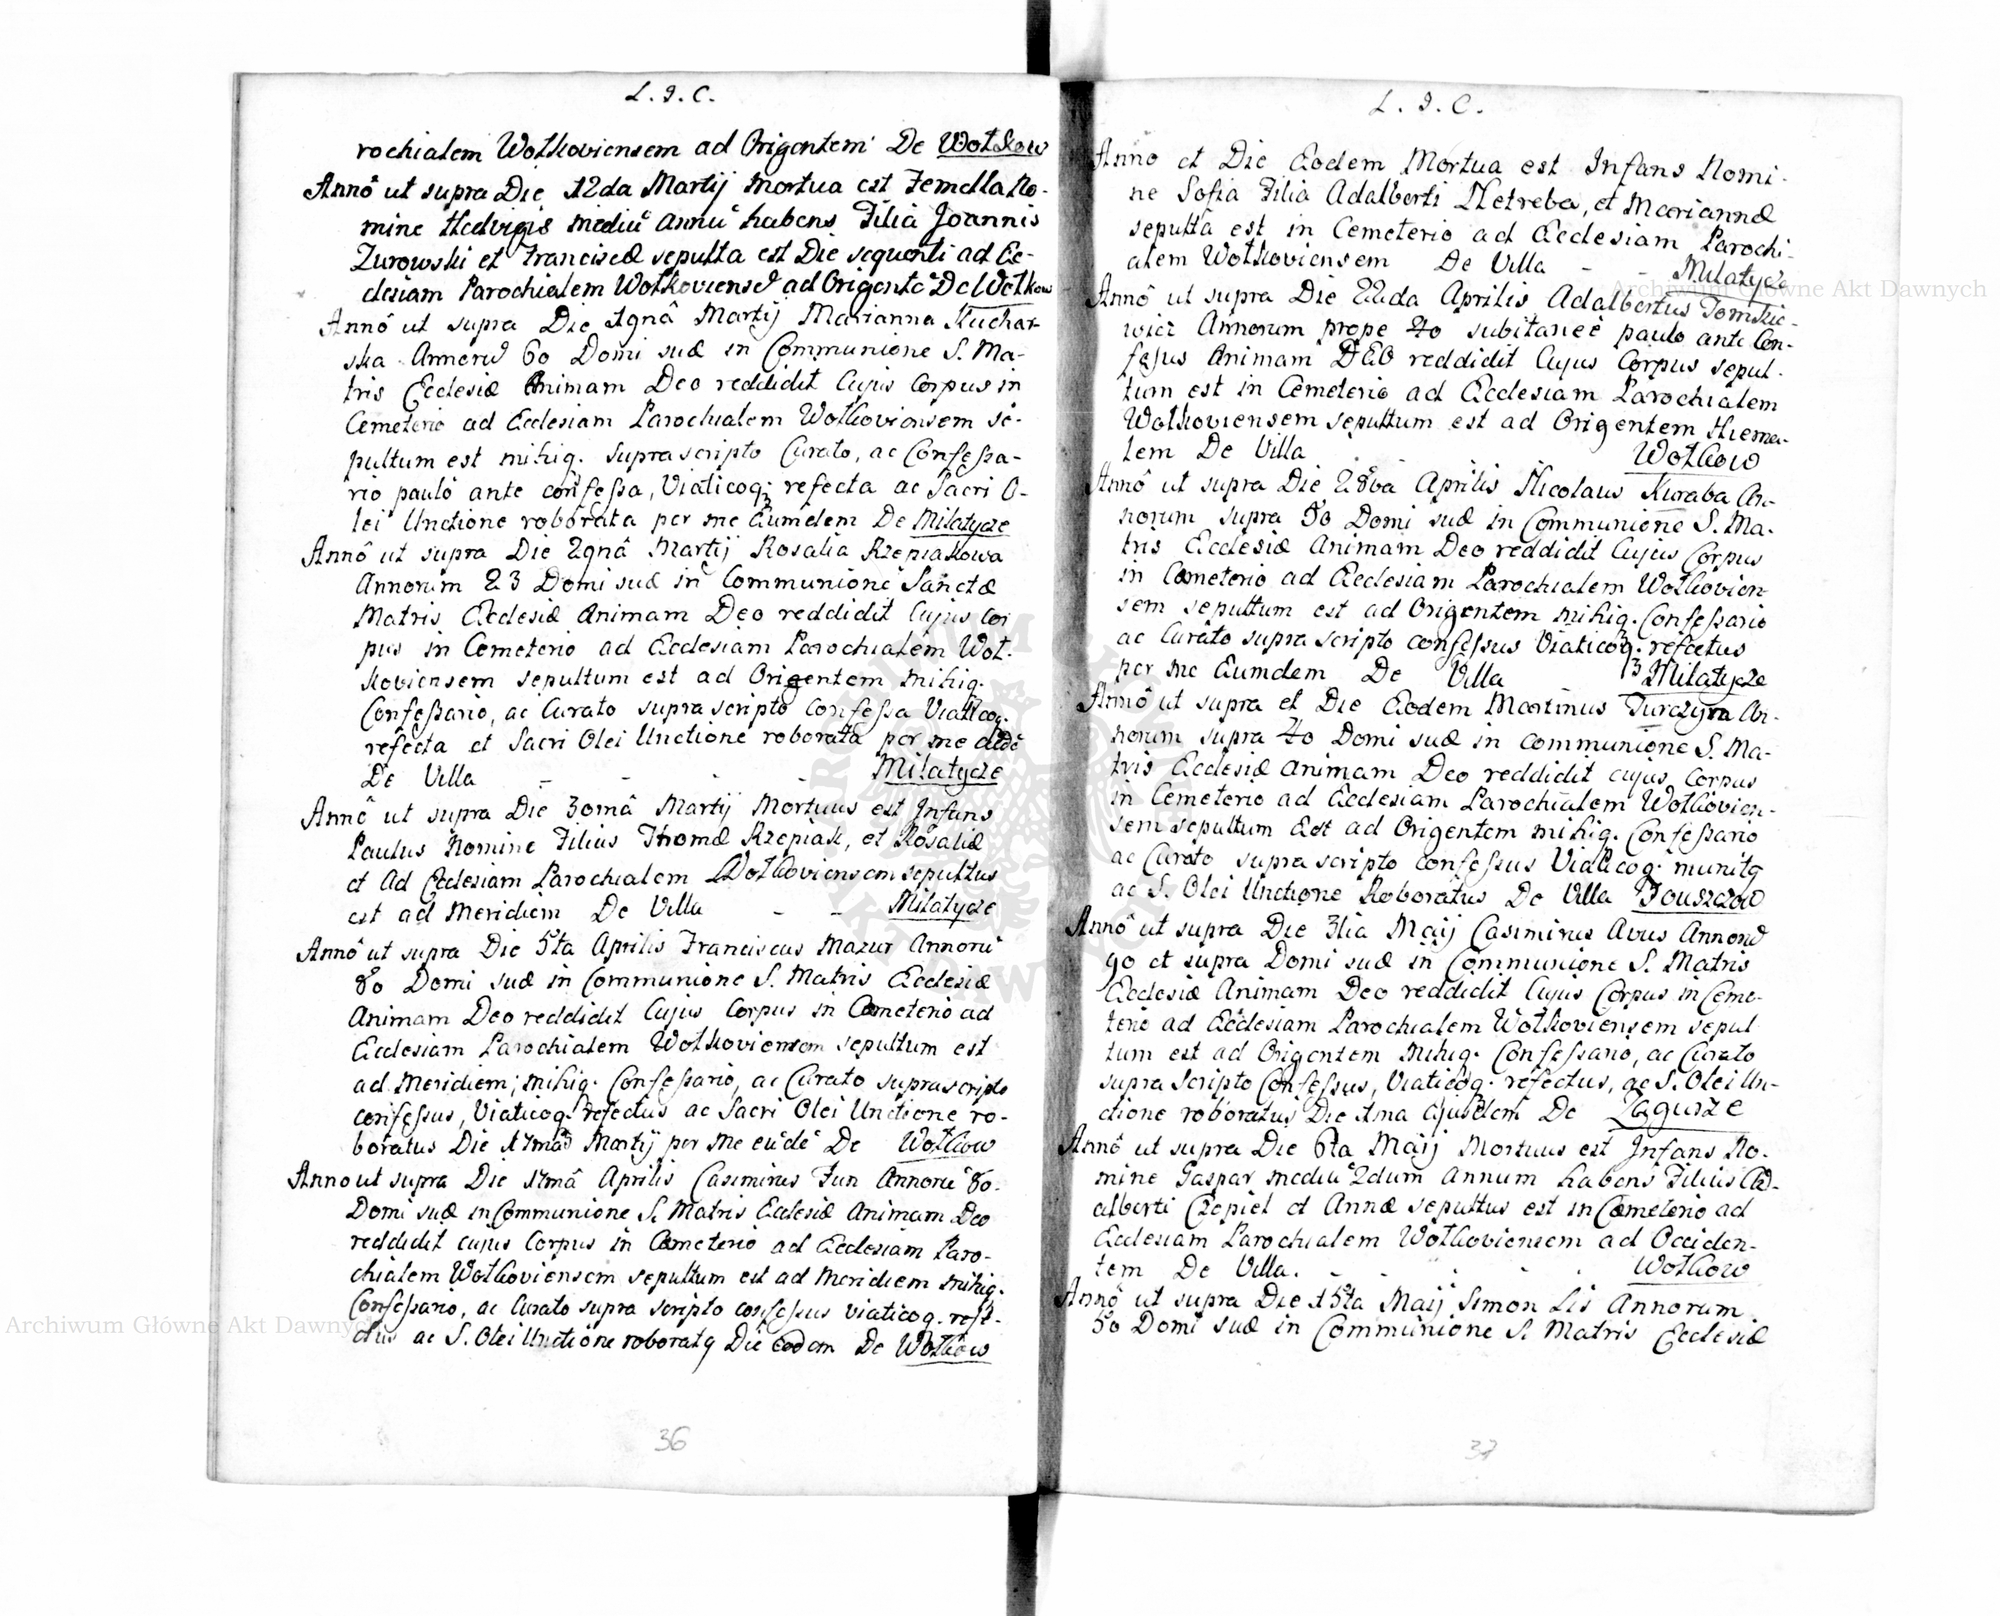 L. J. C.
rochialem Wołkoviensem ad Origentem De Wołkow
Annô ut supra Die 12da Martij mortua est Femella No-
mine Hedvigis mediũ annũ habens Filia Joannis
Zurowski et Franciscæ sepulta est Die sequenti ad Ec-
clesiam Parochialem Wołkoviensẽ ad Origentẽ De Wołkow
Annô ut supra Die 19nâ Martij Marianna Kuchar-
ska Annorũ 60 Domi suæ in Communione S. Ma-
tris Ecclesiæ Animam Deo reddidit Cujus Corpus in
Cemeterio ad Ecclesiam Parochialem Wołkoviensem se-
pultum est mihiq. suprascripto Curato, ac Confessa-
rio paulo ante confessa, Viaticoq; refecta ac Sacri O-
lei Unctione roborata per me Eumdem De Milatycze
Annô ut supra Die 29nâ Martij Rosalia Rzepiakowa
Annorum 23 Domi suæ in Communione Sanctæ
Matris Ecclesiæ Animam Deo reddidit Cujus Cor
pus in Cemeterio ad Ecclesiam Parochialem Woł-
koviensem sepultum est ad Origentem mihiq.
Confessario, ac Curato suprascripto Confessa Viaticoq.
refecta et Sacri Olei Unctione roborata per me
De Villa - - - - Milatycze
Annô ut supra Die 30mâ Martij Mortuus est Infans
Paulus Nomine Filius Thomæ Rzepiak, et Rosaliæ
et Ad Ecclesiam Parochialem Wołkoviensem sepultus
est ad Meridiem De Villa - - Milatycze
Annô ut supra Die 5ta Aprilis Franciscus Mazur Annorũ
80 Domi suæ in Communione S. Matris Ecclesiæ
Animam Deo reddidit Cujus Corpus in Cæmeterio ad
Ecclesiam Parochialem Wołkoviensem sepultum est
ad Meridiem; mihiq. Confessario, ac Curato suprascripto
confessus, Viaticoq. refectus ac Sacri Olei Unctione ro-
boratus Die 17mâ Martij per me eũdẽ De Wołkow
Anno ut supra Die 17mâ Aprilis Casimirus Fun Annorũ 80.
Domi suæ in Communione S. Matris Ecclesiæ Animam Deo
reddidit cujus Corpus in Cæmeterio ad Ecclesiam Paro-
chialem Wołkoviensem sepultum est ad Meridiem mihiq.
Confessario, ac Curato supra scripto confessus viaticoq. refe-
ctus ac S. Olei Unctione roboratq Die eodem De Wołkow
36
L. J. C.
Anno et Die Eodem Mortua est Infans Nomi-
ne Sofia Filia Adalberti Netreba, et Mariannæ
sepulta est in Cemeterio ad Ecclesiam Parochi-
alem Wołkoviensem De Villa - - Milatycze
Annô ut supra Die 22da Aprilis Adalbertus Tomkie-
wicz Annorum prope 40 subitaneè paulo ante Con-
fessus Animam DEO reddidit Cujus Corpus sepul-
tum est in Cemeterio ad Ecclesiam Parochialem
Wołkoviensem sepultum est ad Origentem Hiema-
lem De Villa - - Wołkow
Annô ut supra Die 28va Aprilis Nicolaus Kuraba An-
norum supra 80 Domi suæ in Communione S. Ma-
tris Ecclesiæ Animam Deo reddidit Cujus Corpus
in Cæmeterio ad Ecclesiam Parochialem Wołkovien-
sem sepultum est ad Origentem mihiq. Confessario
ac Curato supra scripto confessus Viaticoq. refectus
per me Eumdem De Villa Milatycze
Annô ut supra et Die Eodem Martinus Turczyn An-
norum supra 40 Domi suæ in communione S. Ma-
tris Ecclesiæ Animam Deo reddidit cujus Corpus
in Cemeterio ad Ecclesiam Parochialem Wołkovien-
sem sepultum Est ad Origentem mihiq. Confessario
ac Curato supra scripto confessus Viaticoq. munitq
ac S. Olei Unctione Roboratus De Villa Touszczow
Annô ut supra Die 3tia Maij Casimirus Avus Annorũ
90 et supra Domi suæ in Communione S. Matris
Ecclesiæ Animam Deo reddidit Cujus Corpus in Ceme-
terio ad Ecclesiam Parochialem Wołkoviensem sepul
tum est ad Origentem mihiq. Confessario, ac Curato
supra scripto Confessus, Viaticoq. refectus, ac S. Olei Un-
ctione roboratus Die 1ma Ejusdem De Zagurze
Annô ut supra Die 6ta Maij Mortuus est Infans No-
mine Gaspar mediũ 2dum Annum habens Filius Ad-
alberti Czepiel et Annæ sepultus est in Cæmeterio ad
Ecclesiam Parochialem Wołkoviensem ad Occiden-
tem De Villa. - - - - Wołkow
Annô ut supra Die 15ta Maij Simon Lis Annorum
50 Domi suæ in Communione S. Matris Ecclesiæ
37
Archiwum Główne Akt Dawnych
Archiwum Główne Akt Dawnych